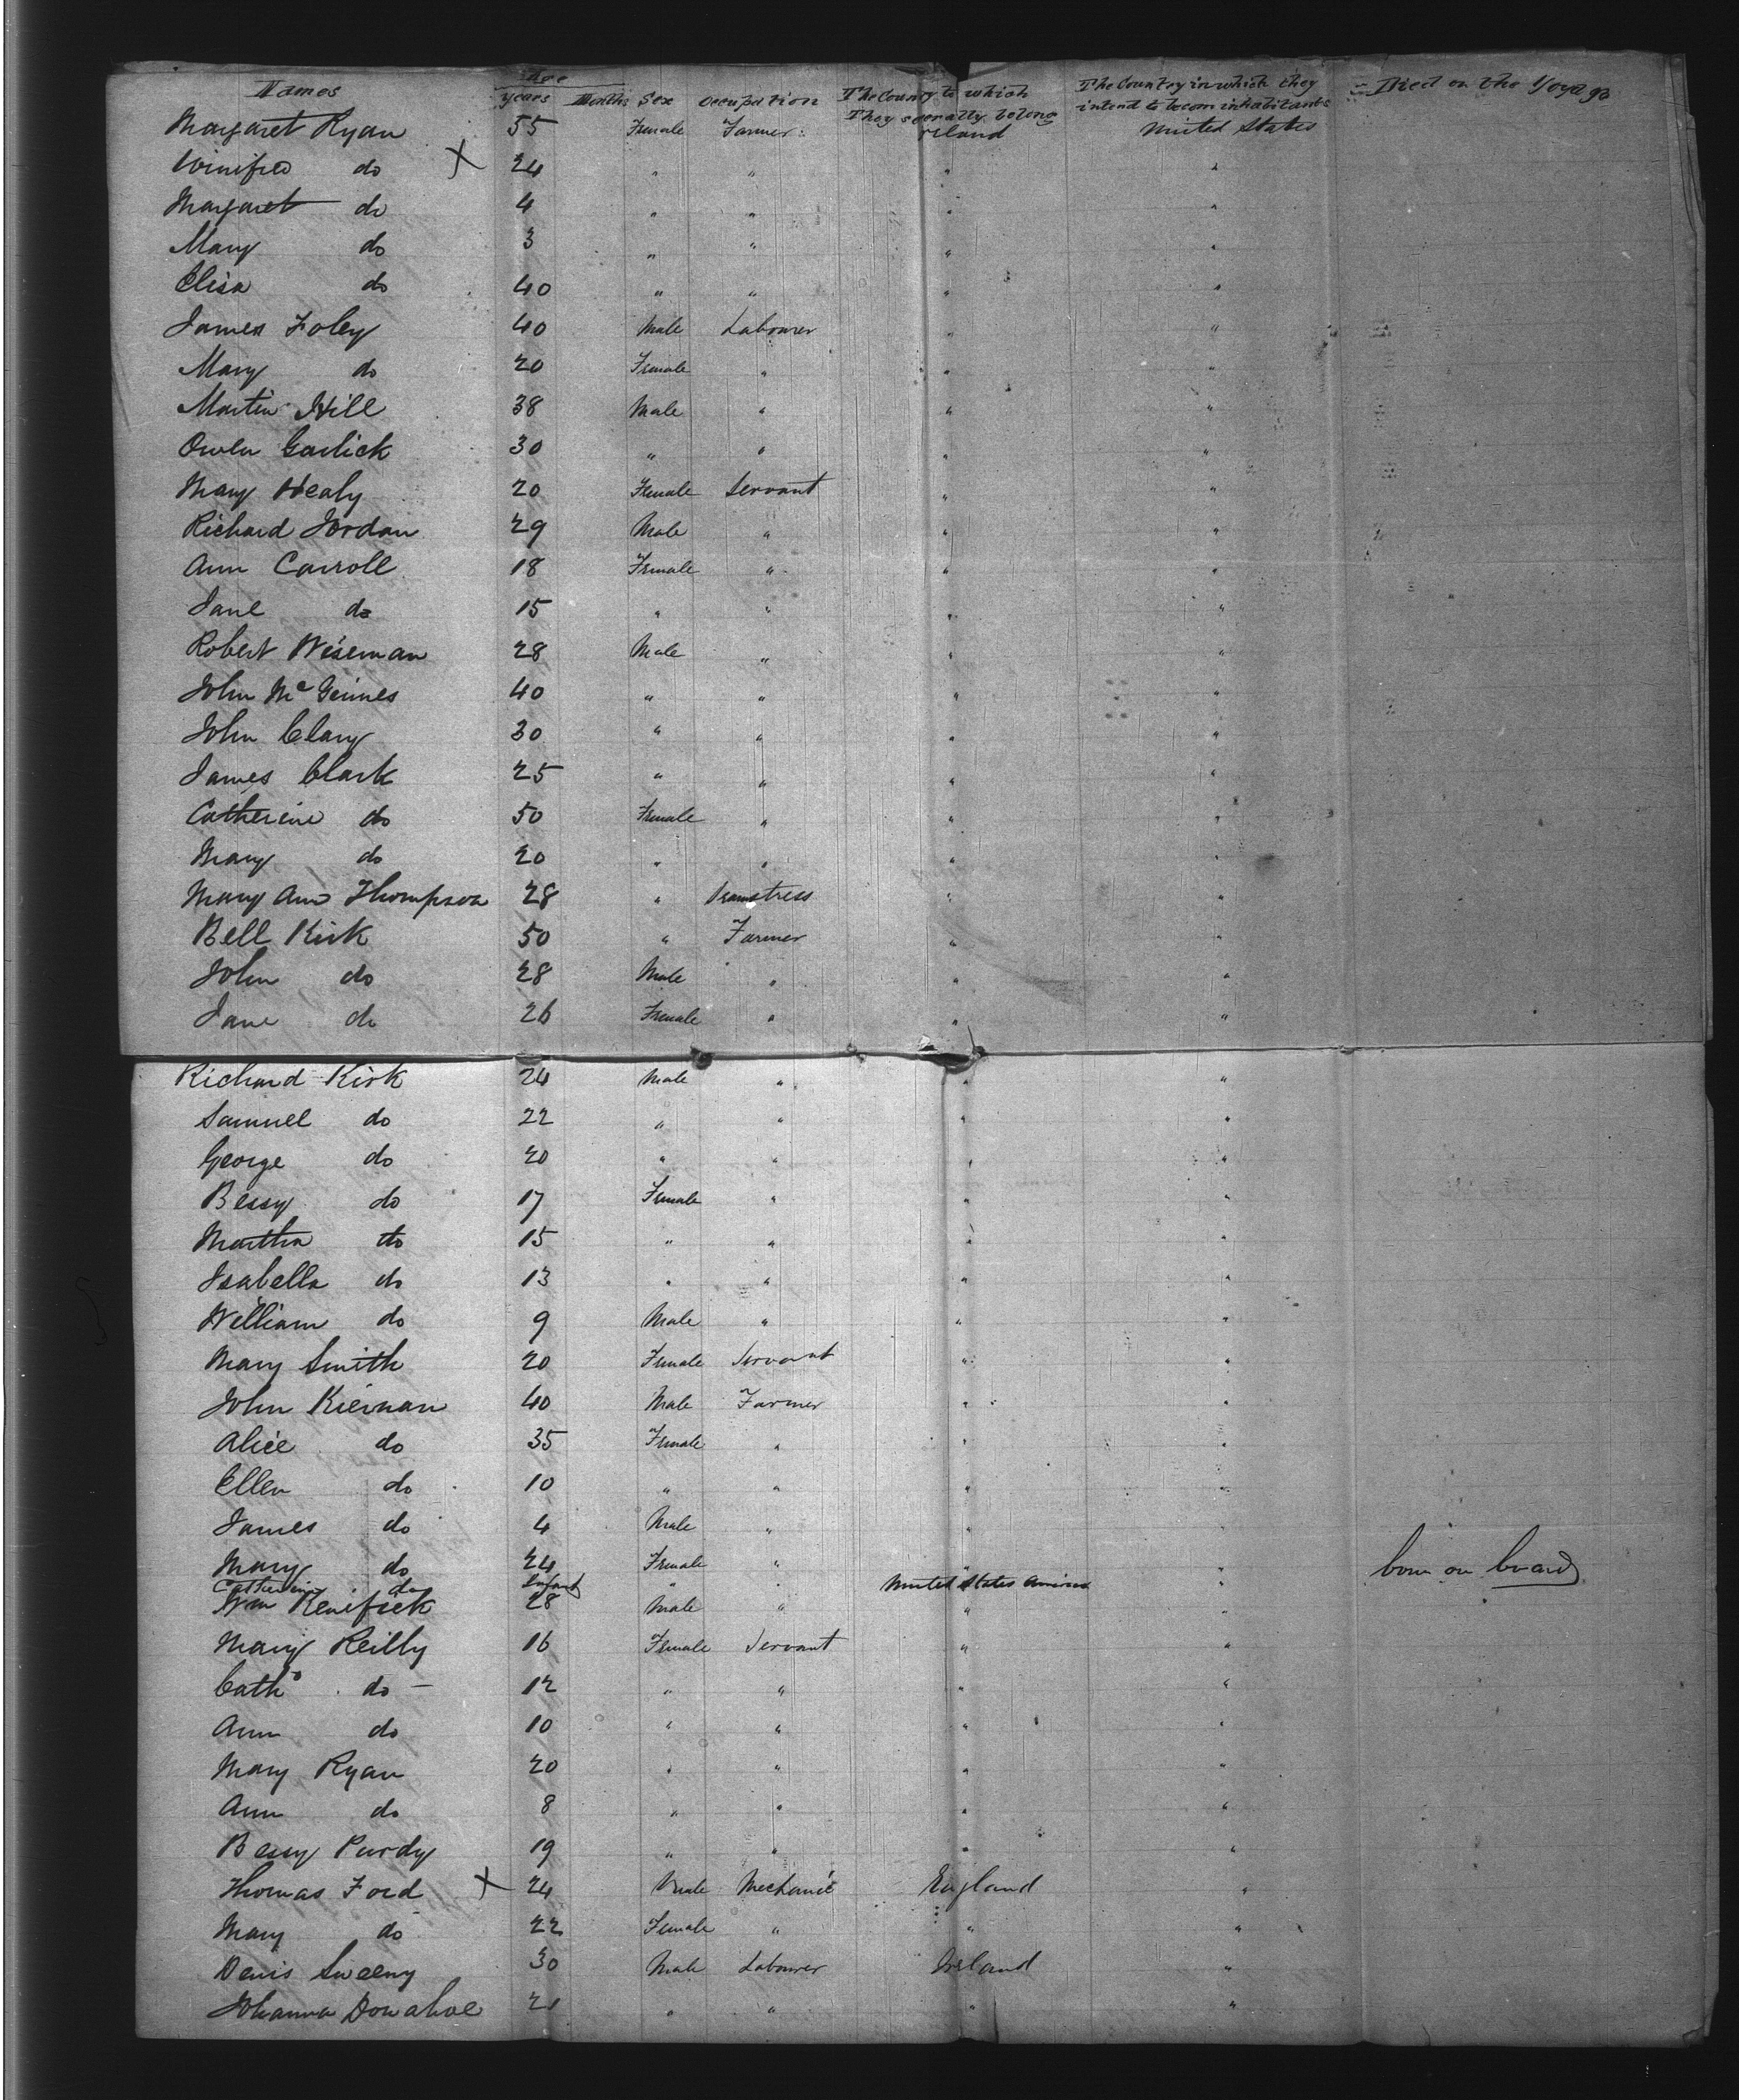 Names Age years Months Sex occupation The Country to which They severally belong The Country in which they intend to becom inhabitants Died on the Voyage
Margaret Ryan 55 Female Farmer Ireland United States
Winifred do X 24 " " " "
Margaret do 4 " " " "
Mary do 3 " " " "
Elisa do 40 " " " "
James Foley 40 Male Labourer " "
Mary do 20 Female " " "
Martin Hill 38 Male " " "
Owen Garlick 30 " " " "
Mary Healy 20 Female Servant " "
Richard Jordan 29 Male " " "
Ann Carroll 18 Female " " "
Jane do 15 " " " "
Robert Wiseman 28 Male " " "
John McGinnes 40 " " " "
John Clary 30 " " " "
James Clark 25 " " " "
Catherine do 50 Female " " "
Mary do 20 " " " "
Mary Ann Thompson 28 " Seamstress " "
Bell Kirk 50 " Farmer " "
John do 28 Male " " "
Jane do 26 Female " " "
Richard Kirk 24 Male " " "
Samuel do 22 " " " "
George do 20 " " " "
Bessy do 17 Female " " "
Martha do 15 " " " "
Isabella do 13 " " " "
William do 9 Male " " "
Mary Smith 20 Female Servant " "
John Kiernan 40 Male Farmer " "
Alice do 35 Female " " "
Ellen do 10 " " " "
James do 4 Male " " "
Mary do 24 Female " " "
Catherine do Infant " " United States America " born on board
Wm Kenifick 28 Male " " "
Mary Reilly 16 Female Servant " "
Cath do - 12 " " " "
Ann do 10 " " " "
Mary Ryan 20 " " " "
Ann do 8 " " " "
Bessy Purdy 19 " " " "
Thomas Ford X 24 Male Mechanic England "
Mary do 22 Female " " "
Denis Sweeny 30 Male Labourer Ireland "
Johanna Donahoe 21 " " " "